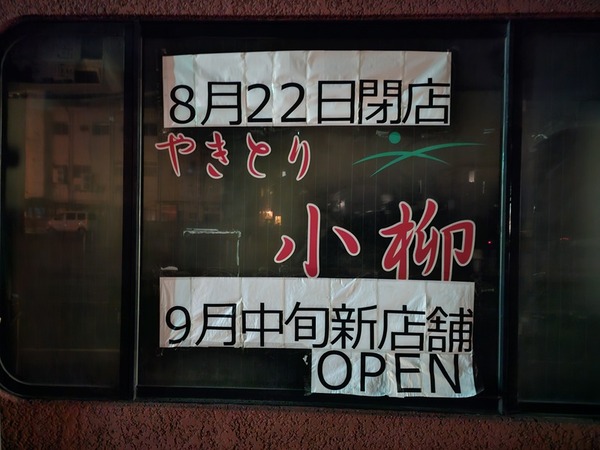 8月22日閉店
やきとり
小柳
9月中旬新店舗
OPEN